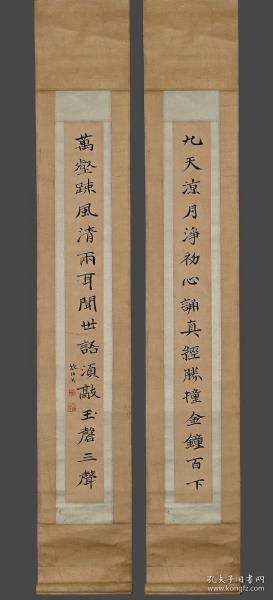 九天涼月淨初心誦真經勝撞金鐘百下
萬壑踈風清兩耳聞世語須敲玉磬三聲
孔夫子旧书网